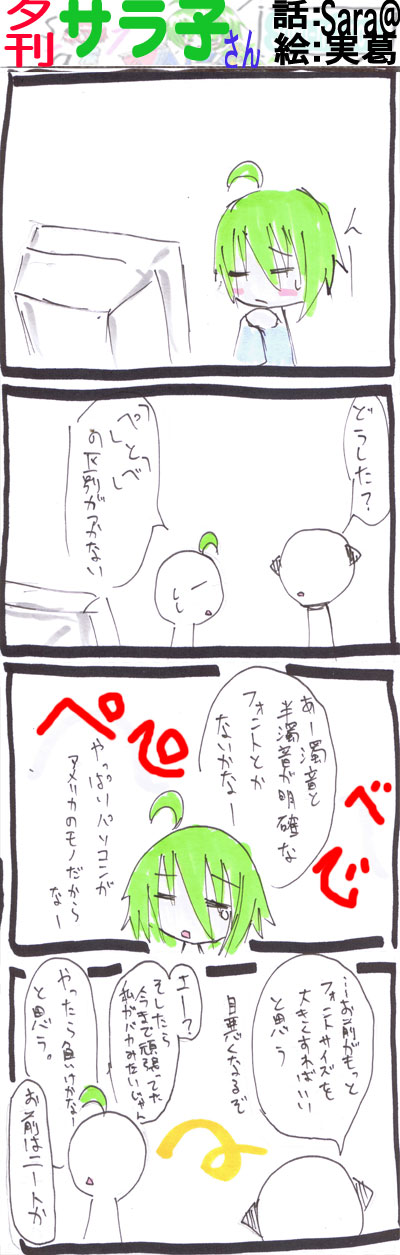 夕刊
サラ子
さん
話:Sara@
絵:実葛
どうした?
「ぺ」と「べ」
の区別がつかない
あー濁音と
半濁音が明確な
フォントとか
ないかなー
ぺ
ぴ
べ
で
やっぱりパソコンが
アメリカのモノだから
なー
…お前がもっと
フォントサイズを
大きくすればいい
と思う
目悪くなるぞ
えー?
そしたら
今まで頑張ってた
私がバカみたいじゃん
やったら負いけかなー
と思う。
お前はニートか